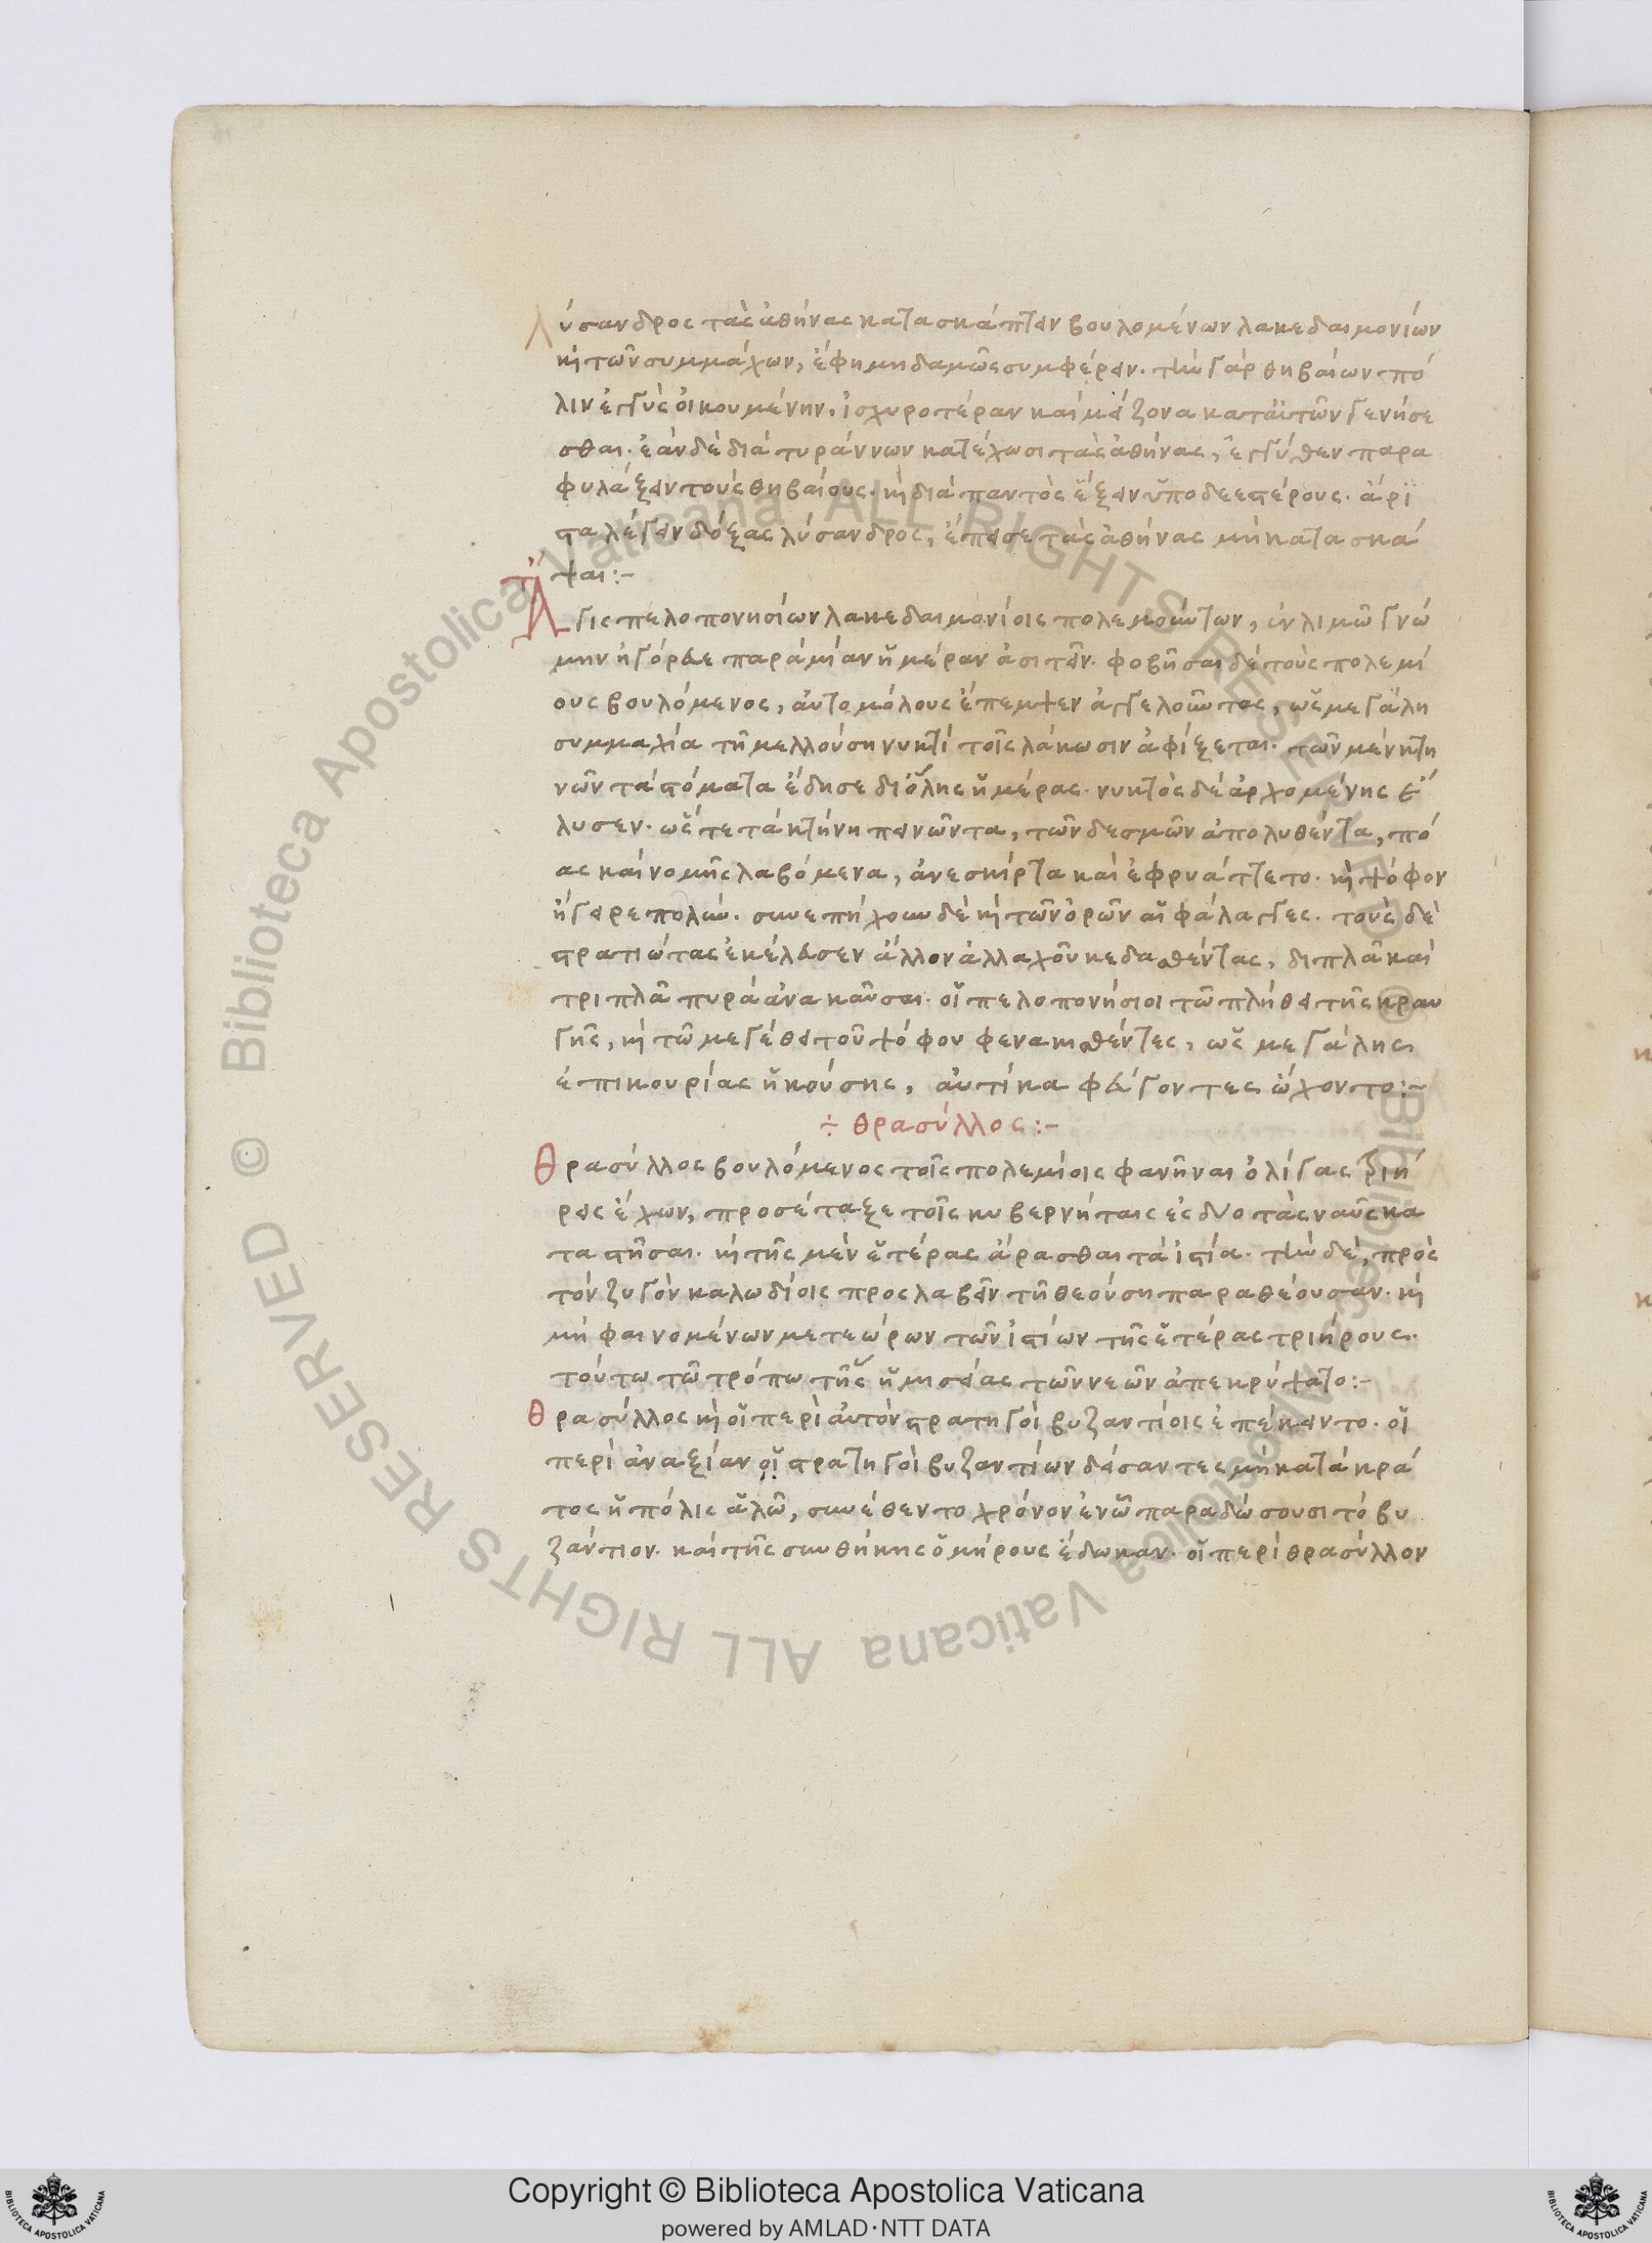 Λύσανδρος τὰς ἀθήνας κατασκάπτειν βουλομένων λακεδαιμονίων
καὶ τῶν συμμάχων, ἔφη μηδαμῶς συμφέρειν. τὴν γὰρ θηβαίων πό
λιν ἐγγὺς οἰκουμένην. ἰσχυροτέραν καὶ μείζονα κατ' αὐτῶν γενήσε
σθαι. ἐὰν δὲ διὰ τυράννων κατέχωσι τὰς ἀθήνας, ἐγγύθεν παρα
φυλάξειν τοὺς θηβαίους. καὶ διὰ παντὸς ἕξειν ὑποδεεστέρους. ἄρι
στα λέγειν δόξας λύσανδρος, ἔπεισε τὰς ἀθήνας μὴ κατασκά
ψαι:-
Ἆγις πελοπονησίων λακεδαιμονίοις πολεμούντων, ἐν λιμῶ γνώ
μην ἠγόρευε παρὰ μίαν ἡμέραν ἀσιτεῖν. φοβῆσαι δὲ τοὺς πολεμί
ους βουλόμενος, αὐτομόλους ἔπεμψεν ἀγγελοῦντας, ὡς μεγάλη
συμμαχία τῆ μελλούση νυκτὶ τοῖς λάκωσιν ἀφίξεται. τῶν μὲν κτη
νῶν τὰ στόματα ἔδησε δι' ὅλης ἡμέρας. νυκτὸς δὲ ἀρχομένης ἔ
λυσεν. ὥστε τὰ κτήνη πεινῶντα, τῶν δεσμῶν ἀπολυθέντα, πό
ας καὶ νομῆς λαβόμενα, ἀνεσκίρτα καὶ ἐφρυάττετο. καὶ ψόφον
ἤγειρε πολύν. συνεπήχουν δὲ καὶ τῶν ὀρῶν αἱ φάλαγγες. τοὺς δὲ
στρατιώτας ἐκέλευσεν ἄλλον ἀλλαχοῦ κεδασθέντας, διπλᾶ καὶ
τριπλᾶ πυρὰ ἀνακαῦσαι. οἱ πελοπονήσιοι τῶ πλήθει τῆς κραυ
γῆς, καὶ τῶ μεγέθει τοῦ ψόφου φενακισθέντες, ὡς μεγάλης
ἐπικουρίας ἡκούσης, αὐτίκα φεύγοντες ὤχοντο:~
÷ θρασύλλος:-
Θρασύλλος βουλόμενος τοῖς πολεμίοις φανῆναι ὀλίγας τριή
ρεις ἔχων, προσέταξε τοῖς κυβερνήταις ἐς δύο τὰς ναῦς κα
ταστῆσαι. καὶ τῆς μὲν ἑτέρας ἄρασθαι τὰ ἱστία. τὴν δὲ, πρὸς
τὸν ζυγὸν καλωδίοις προσλαβεῖν τῆ θεούση παραθέουσαν. καὶ
μὴ φαινομένων μετεώρων τῶν ἱστίων τῆς ἑτέρας τριήρους.
τούτω τῶ τρόπω τῆς ἡμισείας τῶν νεῶν ἀπεκρύψατο:-
Θρασύλλος καὶ οἱ περὶ αὐτὸν στρατηγοὶ βυζαντίοις ἐπέκειντο. οἱ
περὶ ἀναξίαν οἱ στρατηγοὶ βυζαντίων δείσαντες μὴ κατὰ κρά
τος ἡ πόλις ἁλῶ, συνέθεντο χρόνον ἐν ὧ παραδώσουσι τὸ βυ
ζάντιον. καὶ τῆς συνθήκης ὁμήρους ἔδωκαν. οἱ περὶ θρασύλλον
Copyright © Biblioteca Apostolica Vaticana
powered by AMLAD·NTT DATA
© Biblioteca Apostolica Vaticana ALL RIGHTS RESERVED
© Biblioteca Apostolica Vaticana ALL RIGHTS RESERVED
BIBLIOTECA APOSTOLICA VATICANA
BIBLIOTECA APOSTOLICA VATICANA